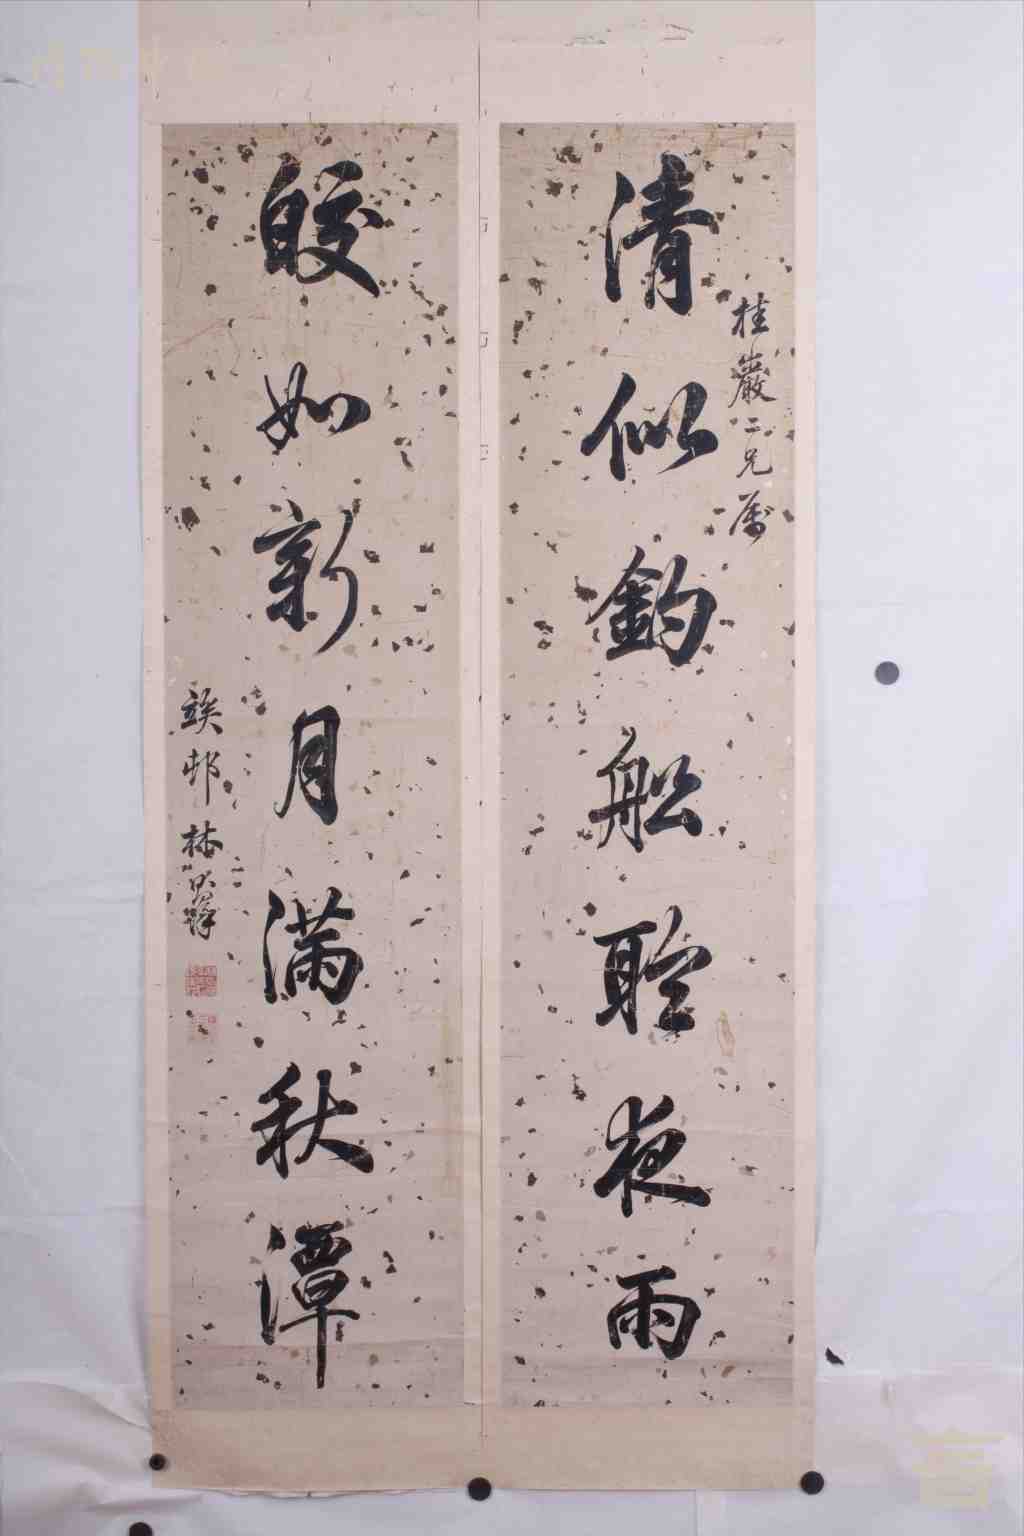 桂巖二兄属
清似釣船聼夜雨
皎如新月满秋潭
竢邨林